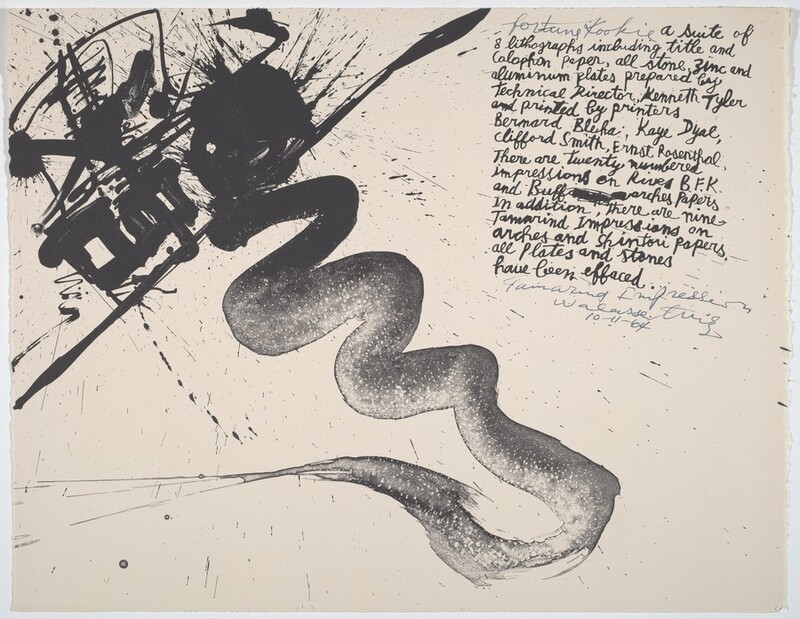 fortune kookie a suite of
8 lithographs including title and
Colophon paper, all stone, Zinc and
aluminum plates prepared by
Technical Director, Kenneth Tyler
and printed by printers
Bernard Bleha, Kaye Dyal,
Clifford Smith, Ernst Rosenthal.
There are twenty numbered
Impressions on Rives B.F.K.
and Buff arches Papers
In addition, There are nine
Tamarind Impressions on
arches and Shintori papers,
all Plates and stones
have been effaced.
Tamarind Impression
Walasse Ting
10-11-64